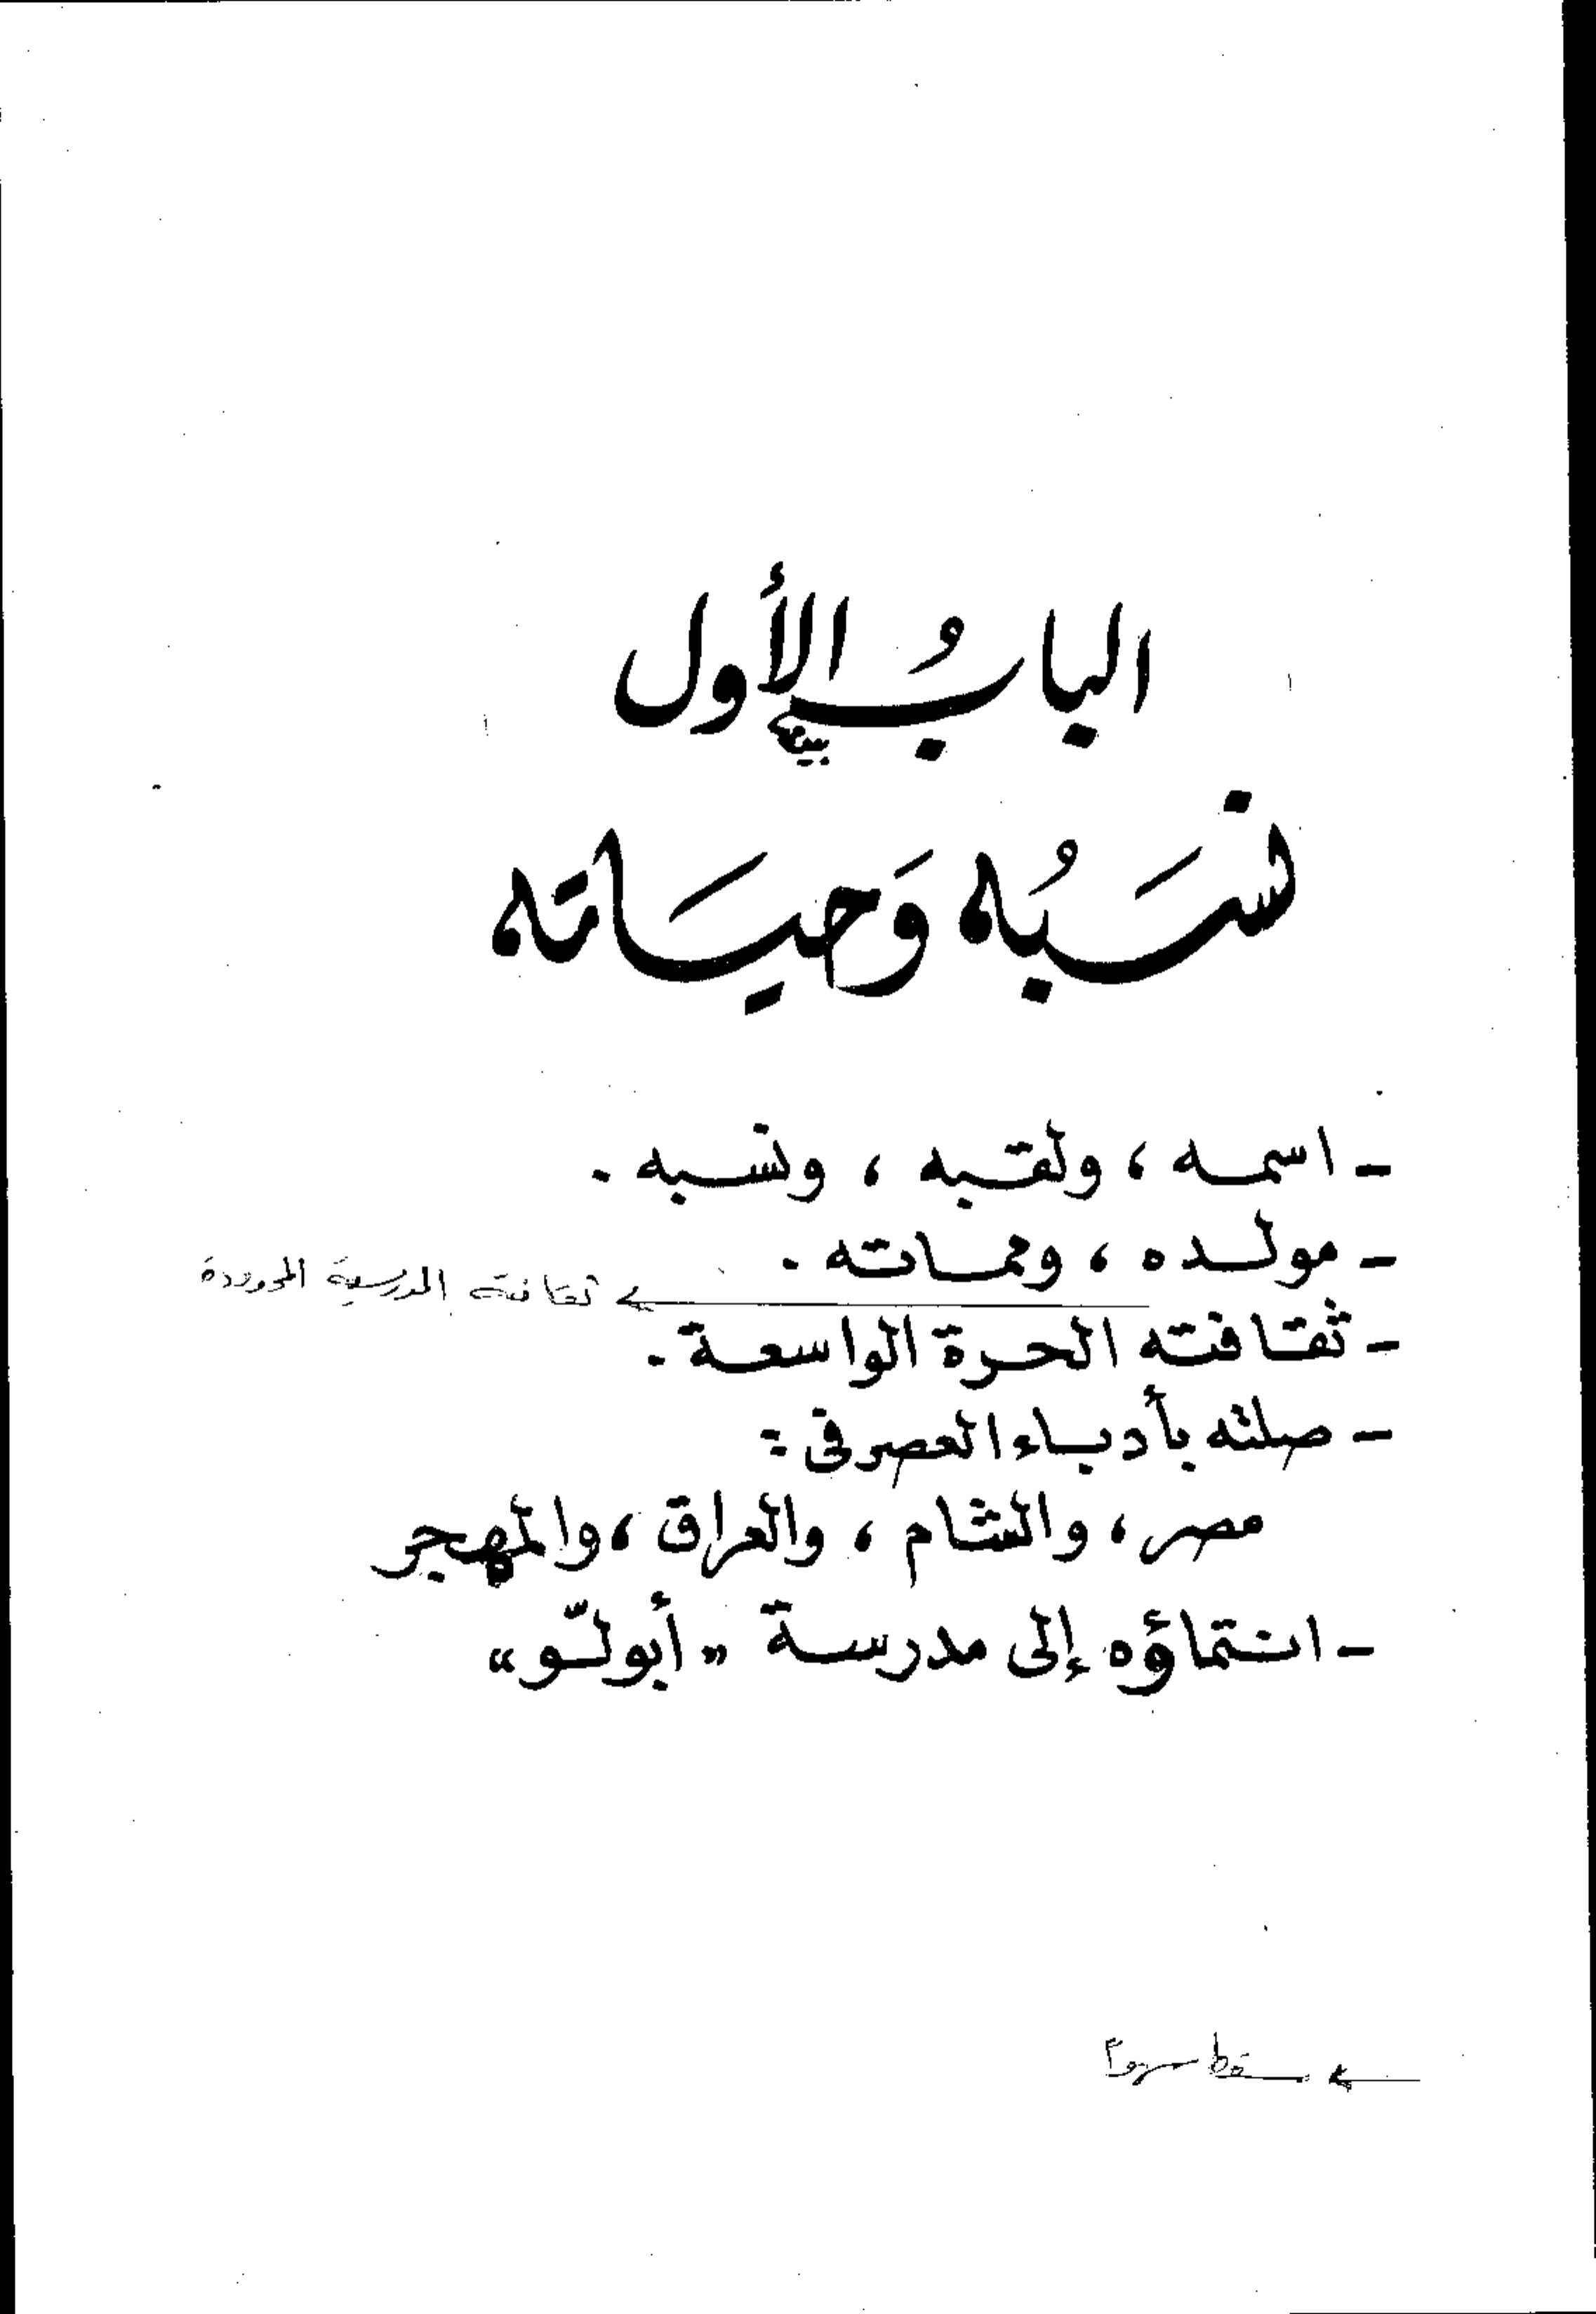 البابُ الأول
نسَبُه وَحيَاته
- اسمه ، ولقبه ، ونسبه .
- مولده ، ومماته .
ثقافته المدرسية المحدودة
- ثقافته الحرة الواسعة .
- صلته بأدباء العصر في :
مصر ، والشام ، والعراق ، والمهجر
- انتماؤه إلى مدرسة « أبولّو »